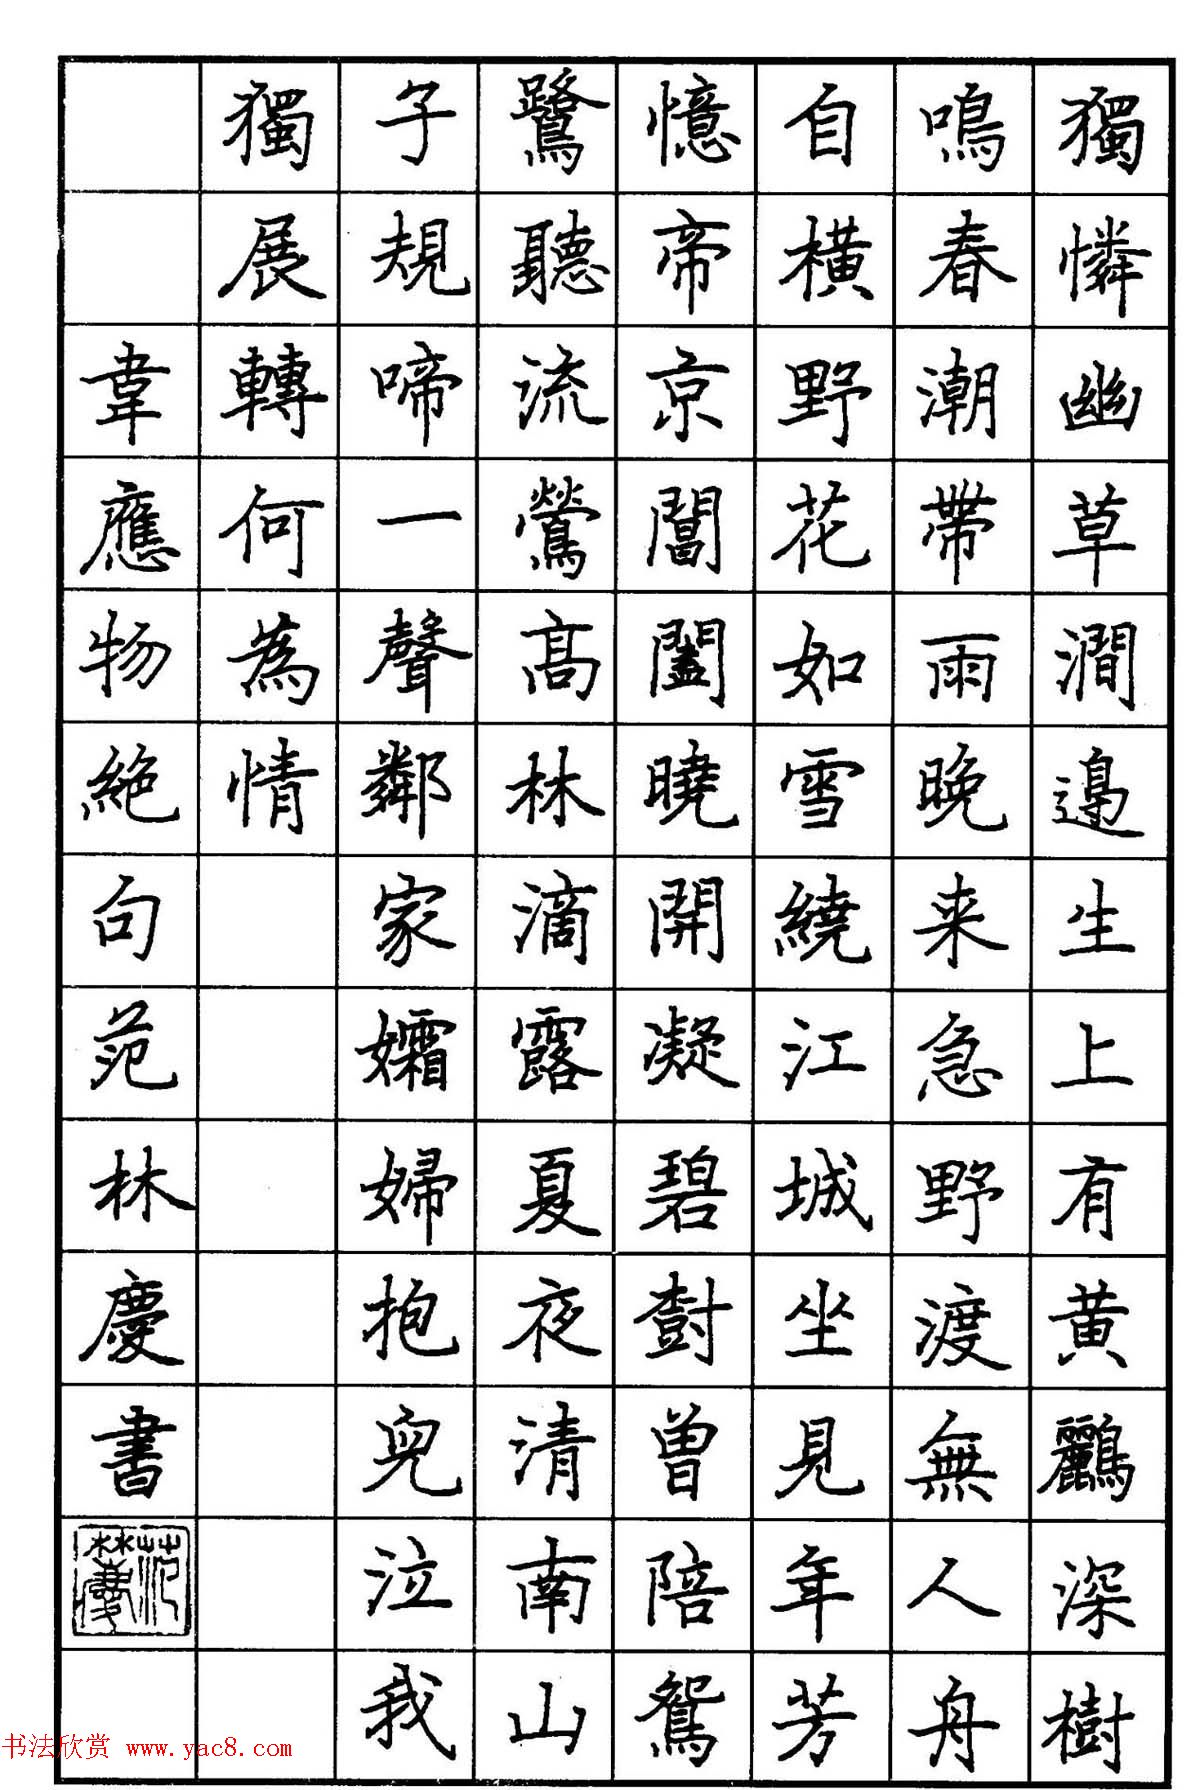 獨憐幽草澗邊生上有黄鸝深樹
鳴春潮帶雨晚来急野渡無人舟
自横野花如雪繞江城坐見年芳
憶帝京閶闔曉開凝碧樹曾陪鴛
鷺聽流鶯高林滴露夏夜清南山
子規啼一聲鄰家孀婦抱兒泣我
獨展轉何為情
韋應物絶句范林慶書
范林慶
书法欣赏 www.yac8.com